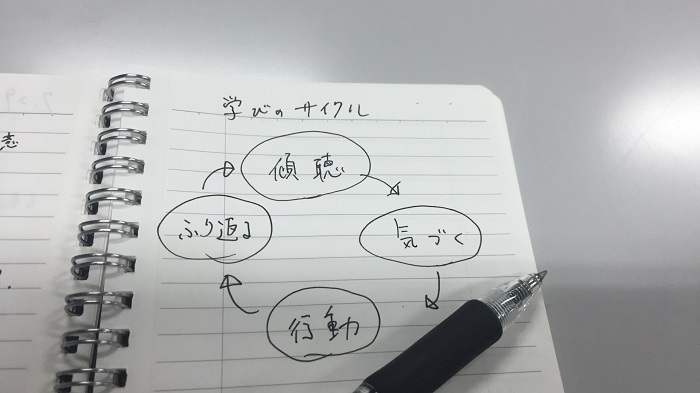 学びのサイクル
傾聴
気づく
行動
ふり返る